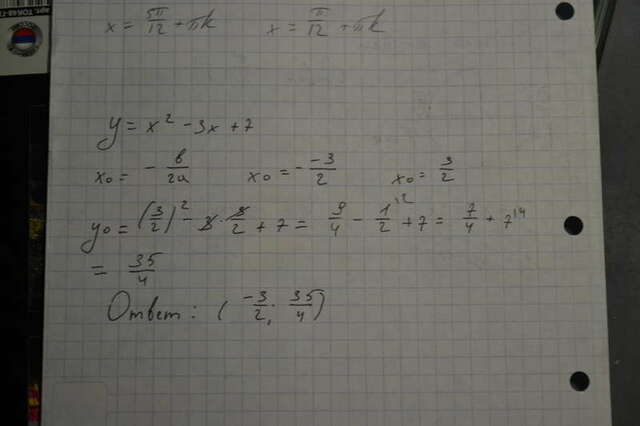 Арт. TDK68-П
x = 5π/12 + πk x = π/12 + πk
y = x² - 3x + 7
x₀ = - в/2a x₀ = - -3/2 x₀ = 3/2
y₀ = (3/2)² - 3 · 3/2 + 7 = 9/4 - 1/2 + 7 = 7/4 + 7
= 35/4
Ответ: ( -3/2; 35/4 )